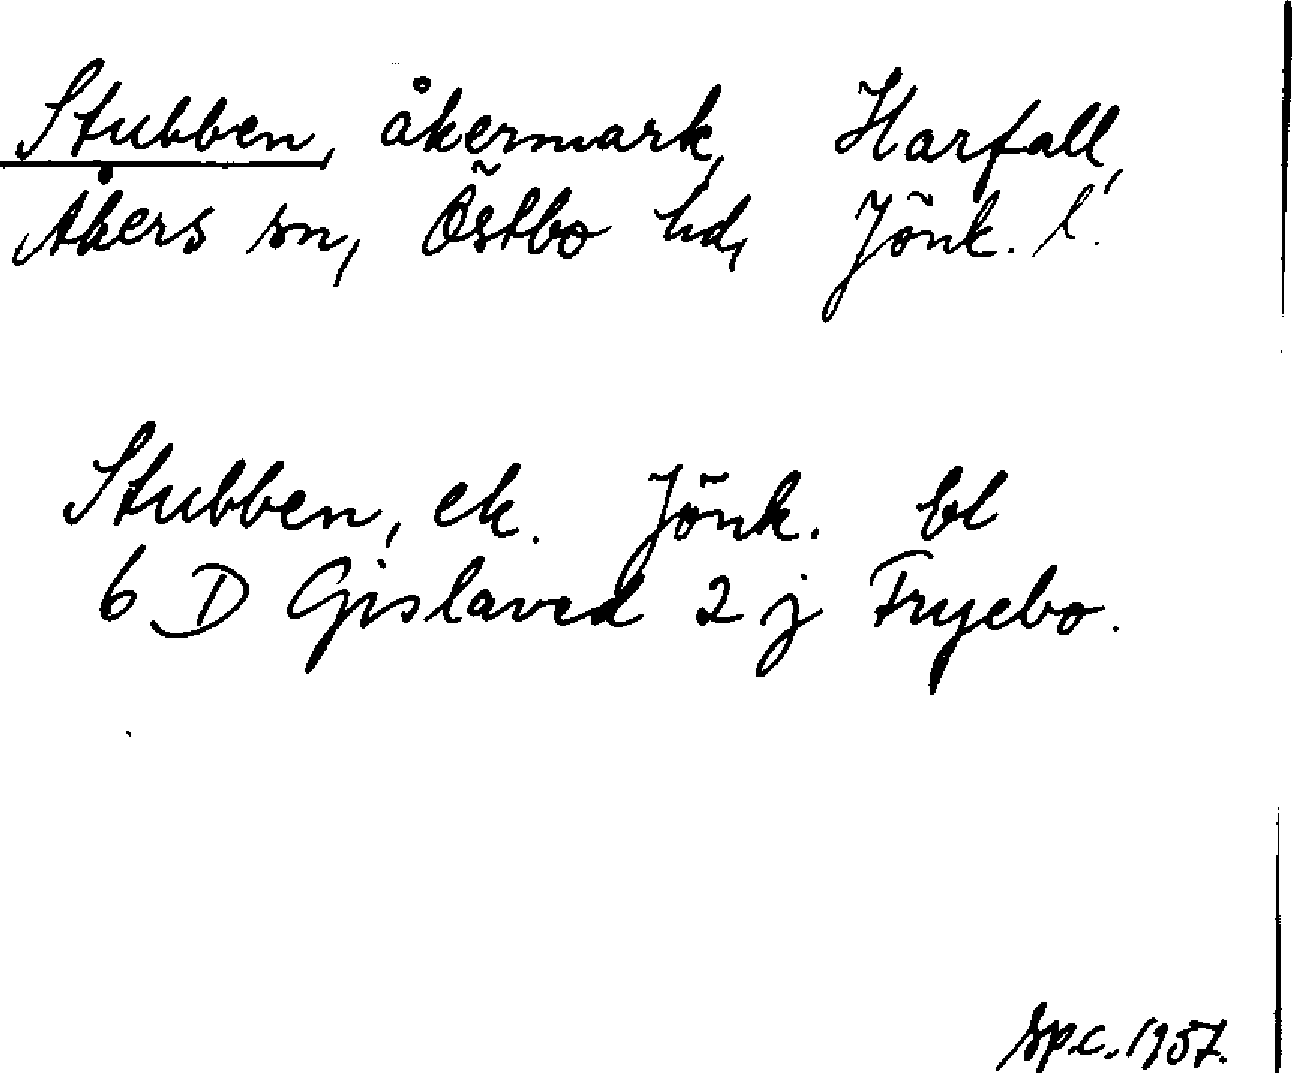 Stubben, åkermark, Harfall,
Åkers sn, Östbo hd, Jönk. l.
Stubben, ek. Jönk. bl
6 D Gislaved 2 j Fryebo.
sp.c. 1957.